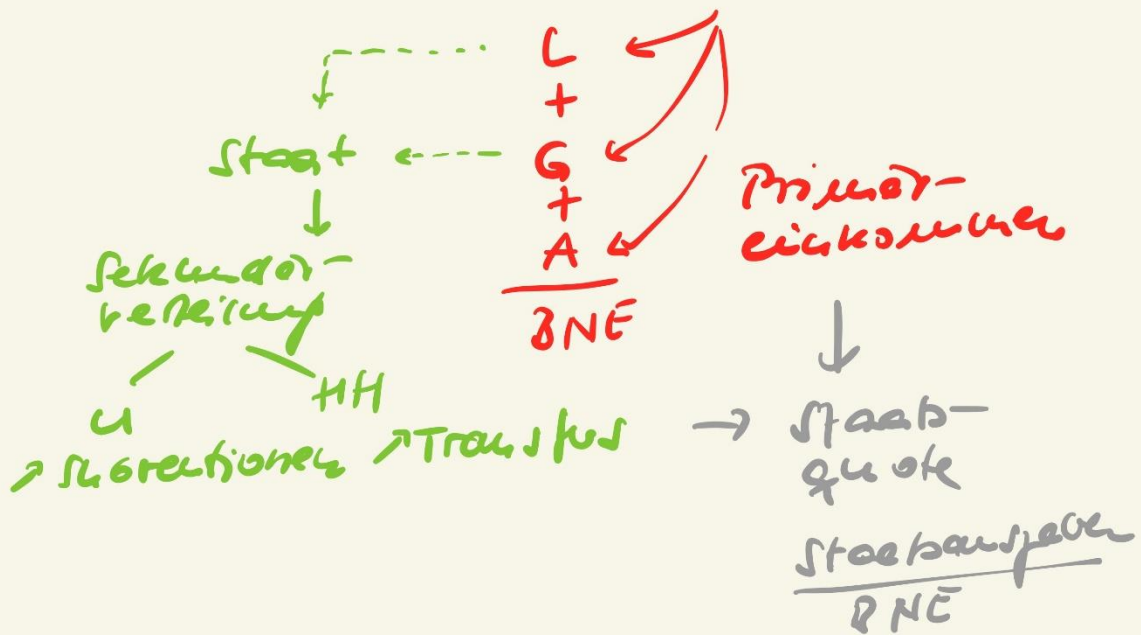 L
+
G
+
A
BNE
Primär-
einkommen
Staat
Sekundär-
verteilung
U
HH
Subventionen
Transfers
Staats-
quote
Staatsausgaben
BNE